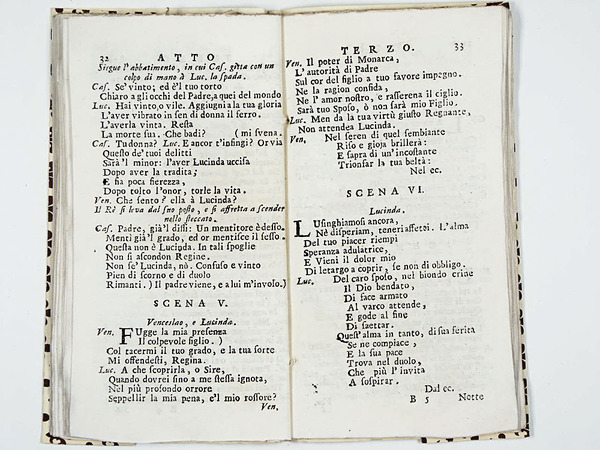 32 ATTO
Siegue l'abbatimento, in cui Cas. gitta con un
colpo di mano à Luc. la spada.
Cas. Se' vinto; ed è'l tuo torto
Chiaro a gli occhi del Padre, a quei del mondo
Luc. Hai vinto, o vile. Aggiugni a la tua gloria
L'aver vibrato in sen di donna il ferro.
L'averla vinta. Resta
La morte sua. Che badi? (mi svena.
Cas. Tu donna? Luc. E ancor t'infingi? Or via
Questo de' tuoi delitti
Sarà'l minor: l'aver Lucinda uccisa
Dopo aver la tradita;
E fia poca fierezza,
Dopo tolto l'onor, torle la vita.
Ven. Che sento? ella à Lucinda?
Il Rè si leva dal suo posto, e si affretta a scender
nello steccato.
Cas. Padre, già'l dissi: Un mentitore è desso.
Menti già'l grado, ed or mentisce il sesso.
Questa non è Lucinda. In tali spoglie
Non si ascondon Regine.
Non se' Lucinda, nò. Confuso e vinto
Pien di scorno e di duolo
Rimanti.) Il padre viene, e a lui m'involo.)
SCENA V.
Venceslao, e Lucinda.
Ven. FUgge la mia presenza
Il colpevole figlio.)
Col tacermi il tuo grado, e la tua sorte
Mi offendesti, Regina.
Luc. A che scoprirla, o Sire,
Quando dovrei sino a me stessa ignota,
Nel più profondo orrore
Seppellir la mia pena, e'l mio rossore?
Ven.
TERZO. 33
Ven. Il poter di Monarca,
L'autorità di Padre
Sul cor del figlio a tuo favore impegno.
Ne la ragion confida,
Ne l'amor nostro, e rasserena il ciglio.
Sarà tuo Sposo, ò non sarà mio Figlio.
Luc. Men da la tua virtù giusto Regnante,
Non attendea Lucinda.
Ven. Nel seren di quel sembiante
Riso e gioja brillerà:
E sapra di un'incostante
Trionfar la tua beltà:
Nel ec.
SCENA VI.
Lucinda.
LUsinghiamosi ancora,
Nè disperiam, teneri affetti. L'alma
Del tuo piacer riempi
Speranza adulatrice,
E Vieni il dolor mio
Di letargo a coprir, se non di obbligo.
Luc. Del caro sposo, nel biondo crine
Il Dio bendato,
Di face armato
Al varco attende,
E gode al fine
Di saettar.
Quest'alma in tanto, di sua ferita
Se ne compiace,
E la sua pace
Trova nel duolo,
Che più l'invita
A sospirar.
Dal ec.
B 5 Notte